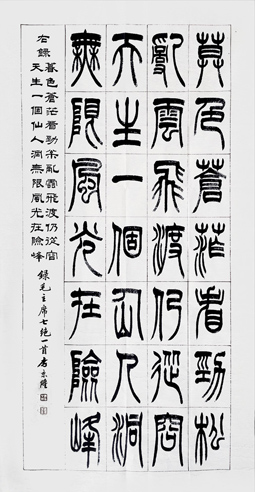 莫色蒼茫看勁松
亂雲飛渡仍從容
天生一個仙人洞
無限風光在險峰
右錄
暮色蒼茫看勁松亂雲飛渡仍從容
天生一個仙人洞無限風光在險峰
錄毛主席七絕一首